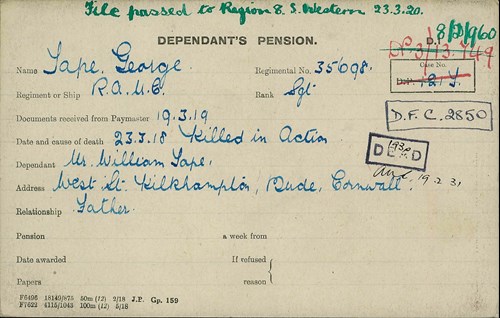 File passed to Region 8. S. Western 23.3.20.
8/D/960
DEPENDANT'S PENSION.
DP. 3/13.749
Name Tape. George. Regimental No. 35698. Case No.
Regiment or Ship R.A.M.C. Rank Sgt
D.F.C. 2850
Documents received from Paymaster 19.3.19
Date and cause of death 23.3.18 Killed in Action
Dependant Mr. William Tape,
DEAD
Address West St. Kilkhampton, Bude, Cornwall. 19.2.31
Relationship Father.
Pension a week from
Date awarded If refused
Papers reason
F6496 18149/875 50m (12) 2/18 J.P. Gp. 159
F7622 4115/1045 100m (12) 5/18